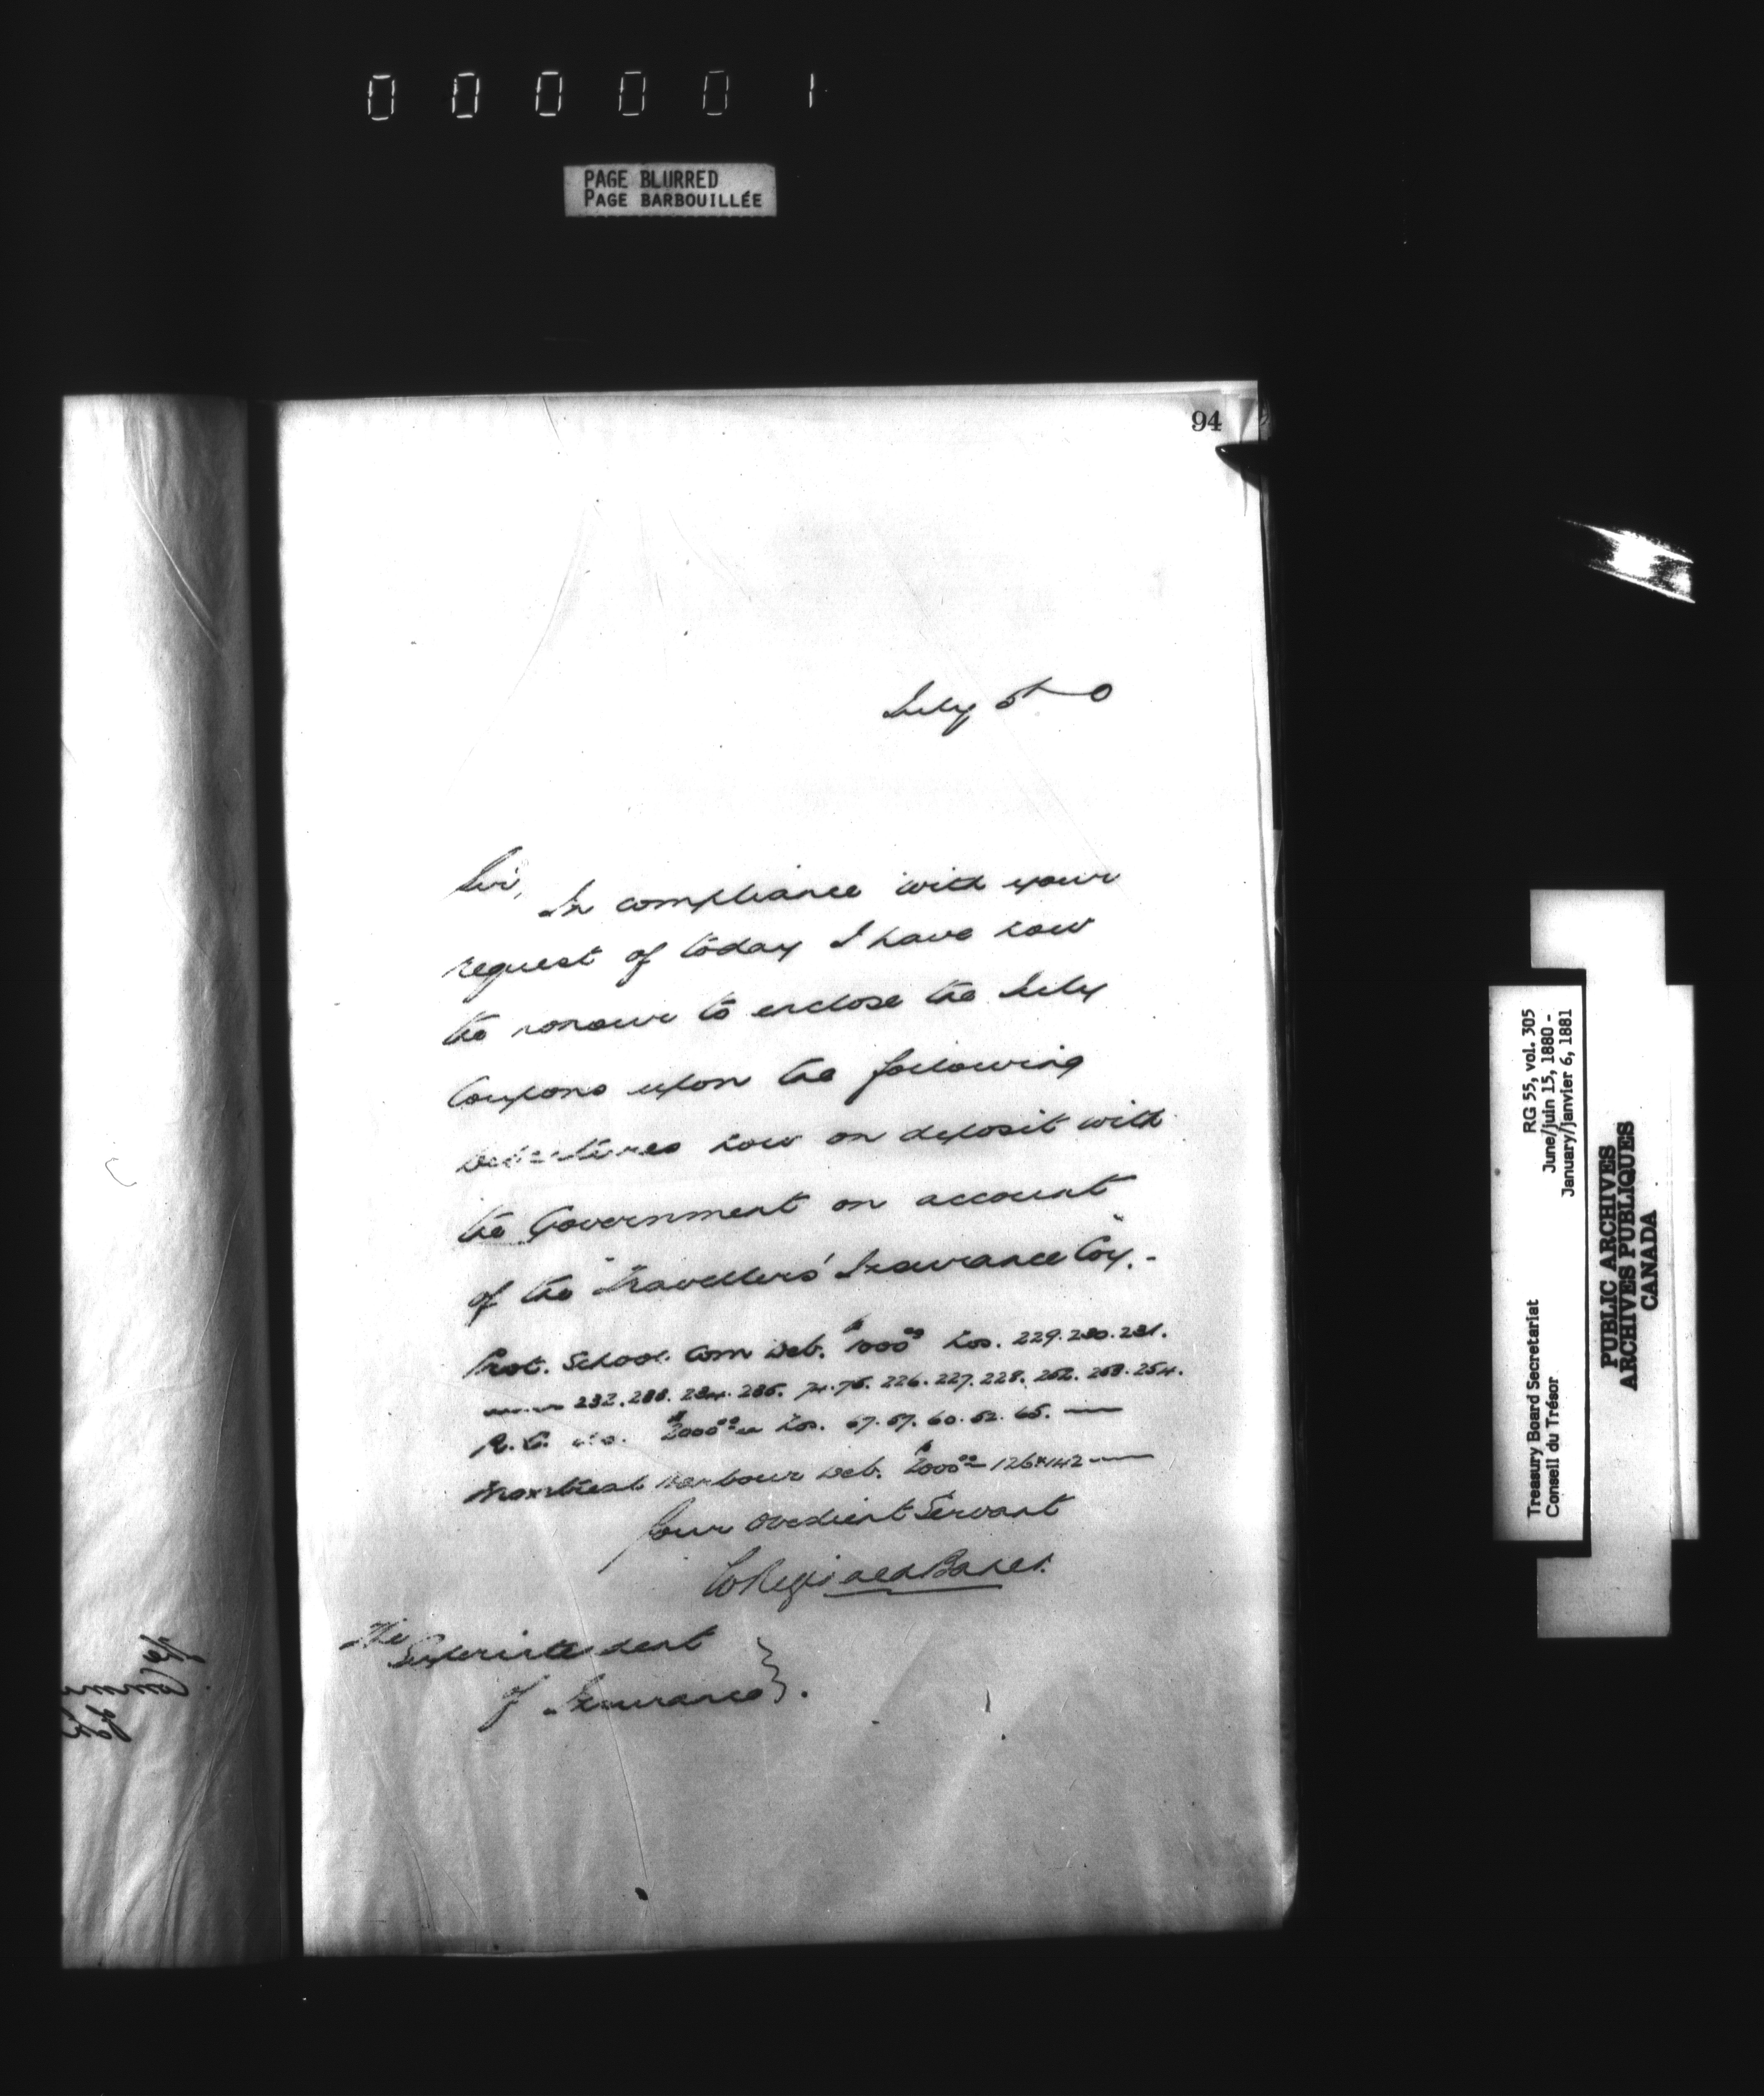 000001
PAGE BLURRED
PAGE BARBOUILLÉE
94
July 5th 0
Sir,
In compliance with your
request of today I have now
the honour to enclose the July
Coupons upon the following
Debentures now on deposit with
the Government on account
of the "Travellers' Insurance Coy."-
Prot. School Com Deb. $1000.00 Nos. 229. 230. 231.
232. 233. 234. 235. 74. 75. 226. 227. 228. 252. 253. 254.
R. C. do. $2000.00 Nos. 67. 57. 60. 52. 65.
Montreal Harbour Deb. $2000.00 126 142
Your Obedient Servant
C Reginald Baker.
The
Superintendent
of Insurance.
The
RG 55, vol. 305
June/juin 15, 1880 -
January/janvier 6, 1881
Treasury Board Secretariat
Conseil du Trésor
PUBLIC ARCHIVES
ARCHIVES PUBLIQUES
CANADA